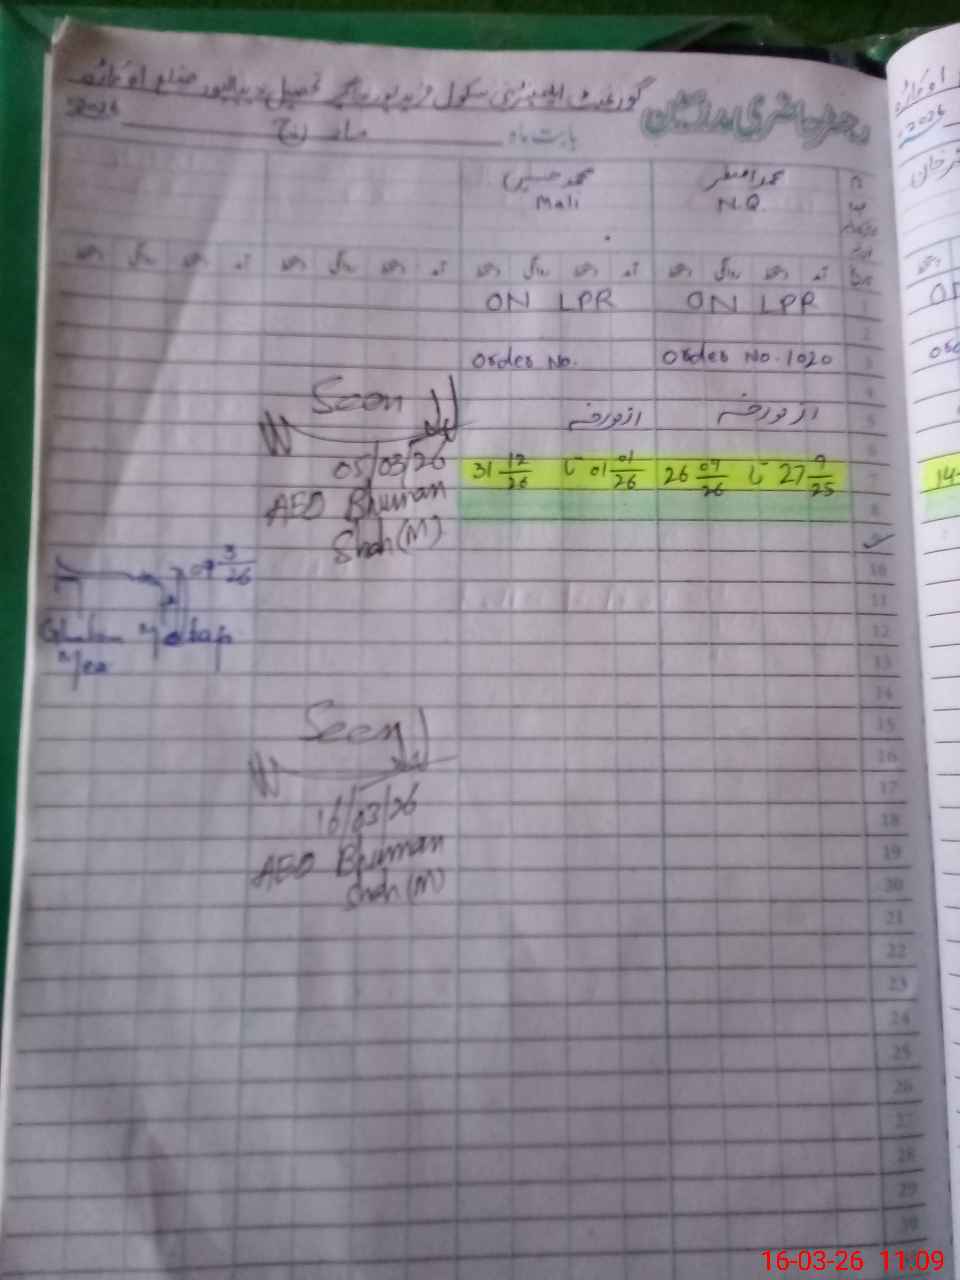 رجسٹر حاضری مدرسین گورنمنٹ ایلیمنٹری سکول فرید پور جاگیر تحصیل دیپالپور ضلع اوکاڑہ
بابت ماہ مارچ 2026
محمد اصغر
محمد حسین
N.Q.
Mali
ON LPR
ON LPR
Order No. 1020
Order No.
از مورخہ
از مورخہ
27 9/25 تا 26 09/26
01 01/26 تا 31 12/26
Seen
05/03/26
AEO Bhuman
Shah (M)
09 3/26
Seen
16/03/26
AEO Bhuman
Shah (M)
1
2
3
4
5
6
7
8
9
10
11
12
13
14
15
16
17
18
19
20
21
22
23
24
25
26
27
28
29
30
2026
16-03-26 11:09